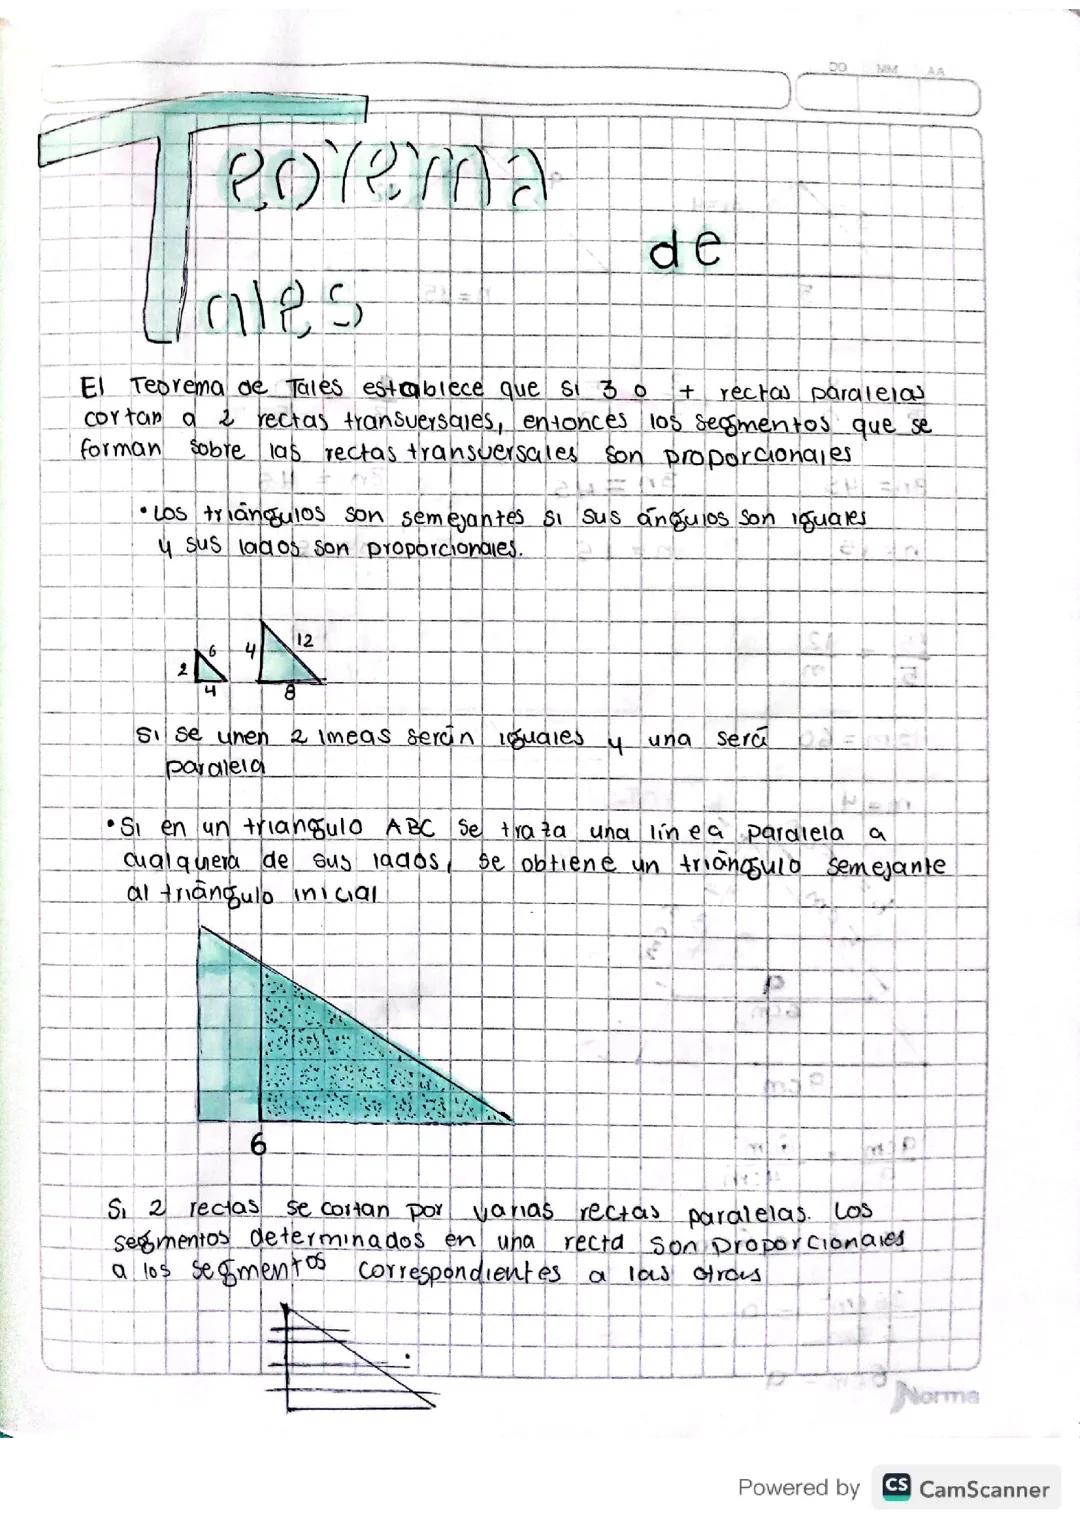 DD MM AA
Teorema
de
Tales
El Teorema de Tales establece que si 3 o + rectas paralelas
cortan a 2 rectas transversales, entonces los segmentos que se
forman sobre las rectas transversales son proporcionales
• Los triángulos son semejantes si sus ángulos son iguales
y sus lados son proporcionales.
2 6 4
4 12 8
Si se unen 2 lineas serán iguales y una será
paralela
• Si en un triangulo ABC se traza una línea paralela a
cualquiera de sus lados, se obtiene un triángulo semejante
al triángulo inicial
6
Si 2 rectas se cortan por varias rectas paralelas. Los
segmentos determinados en una recta son proporcionales
a los segmentos correspondientes a las otras
Norma
Powered by CS CamScanner